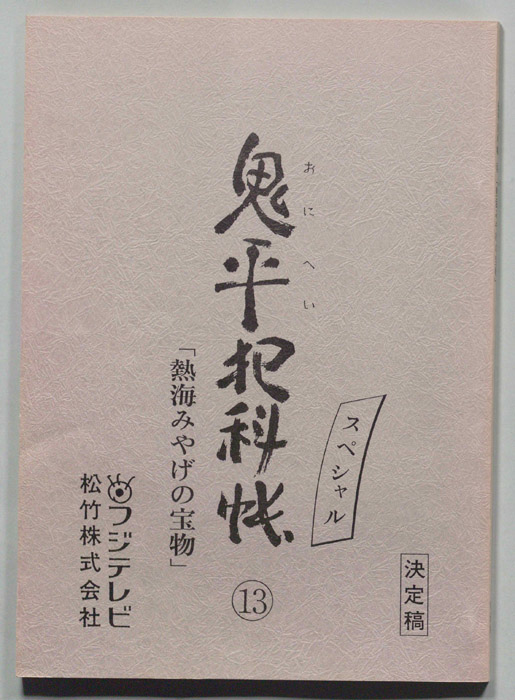 決定稿
スペシャル
おにへい
鬼平犯科帳
⑬
「熱海みやげの宝物」
フジテレビ
松竹株式会社